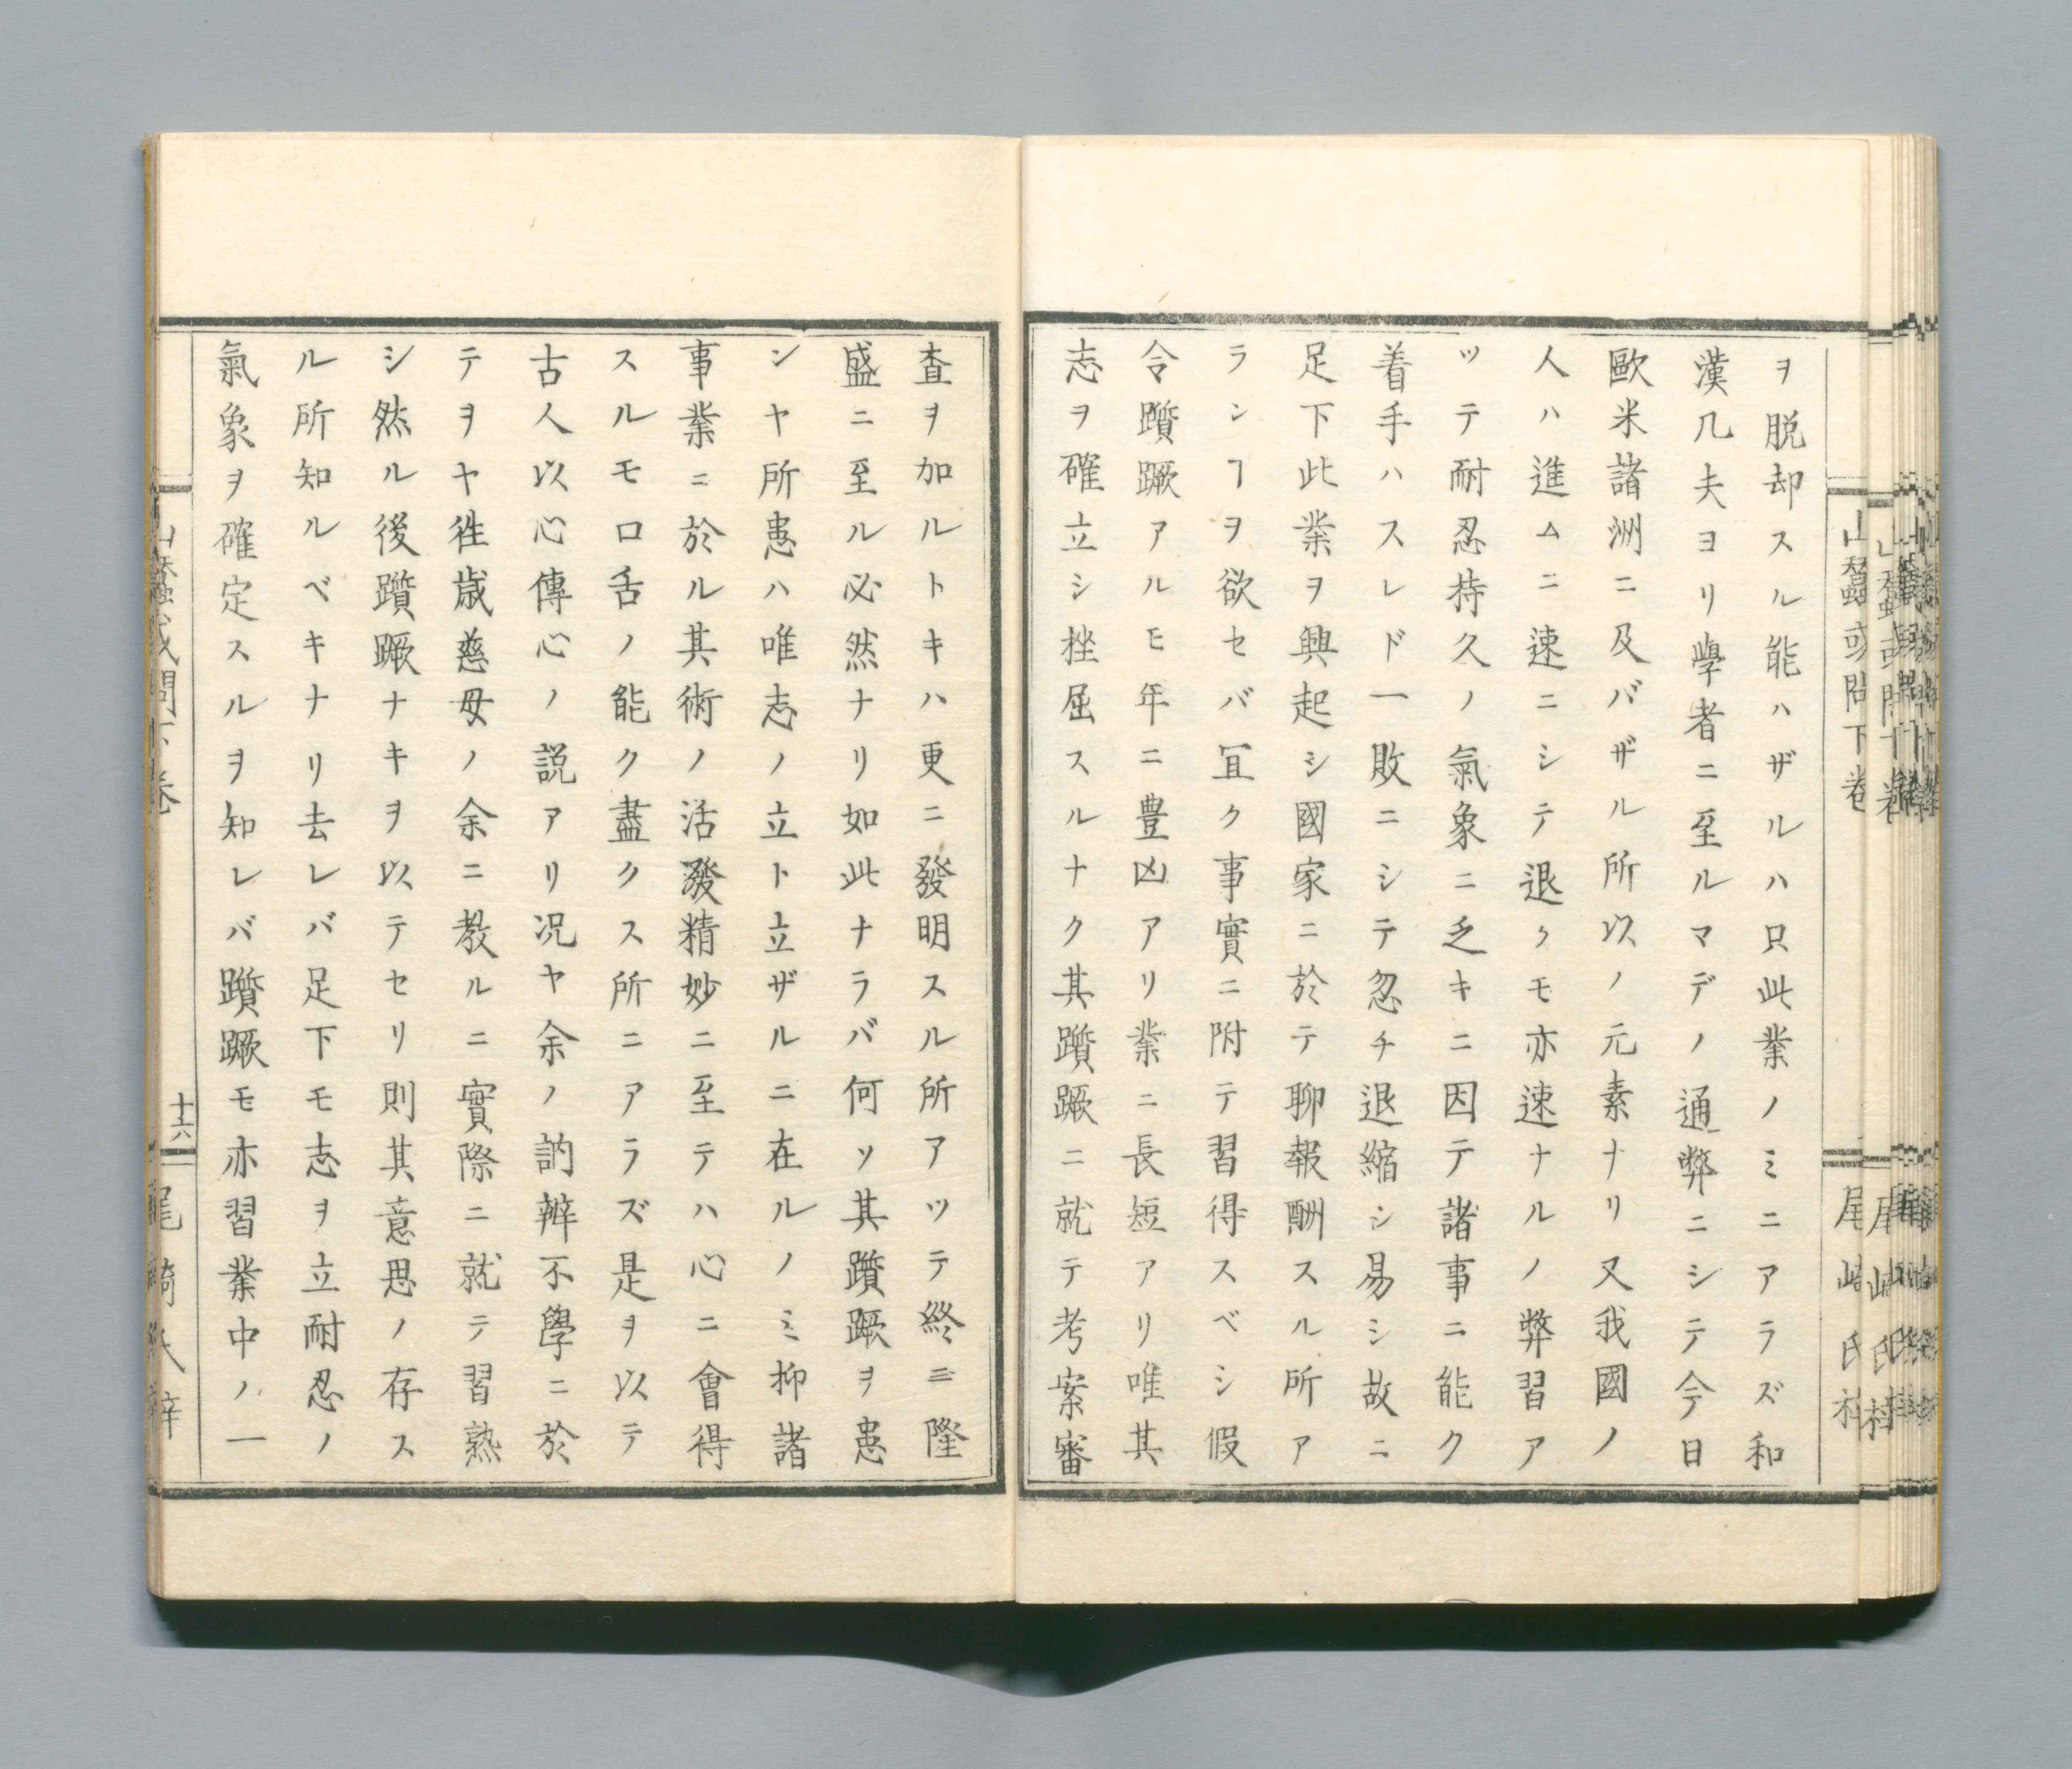 ヲ脱却スル能ハザルハ只此業ノミニアラズ和
漢凡夫ヨリ學者ニ至ルマデノ通弊ニシテ今日
歐米諸洲ニ及バザル所以ノ元素ナリ又我國ノ
人ハ進ムニ速ニシテ退クモ亦速ナルノ弊習ア
ツテ耐忍持久ノ氣象ニ乏キニ因テ諸事ニ能ク
着手ハスレド一敗ニシテ忽チ退縮シ易シ故ニ
足下此業ヲ興起シ國家ニ於テ聊報酬スル所ア
ランヿヲ欲セバ冝ク事實ニ附テ習得スベシ假
令躓蹶アルモ年ニ豊凶アリ業ニ長短アリ唯其
志ヲ確立シ挫屈スルナク其躓蹶ニ就テ考案審
査ヲ加ルトキハ更ニ發明スル所アツテ終ニ隆
盛ニ至ル必然ナリ如此ナラバ何ソ其躓蹶ヲ患
ンヤ所患ハ唯志ノ立ト立ザルニ在ルノミ抑諸
事業ニ於ル其術ノ活潑精妙ニ至テハ心ニ會得
スルモ口舌ノ能ク盡クス所ニアラズ是ヲ以テ
古人以心傳心ノ説アリ况ヤ余ノ訥辨不學ニ於
テヲヤ徃歳慈母ノ余ニ教ルニ實際ニ就テ習熟
シ然ル後躓蹶ナキヲ以テセリ則其意思ノ存ス
ル所知ルベキナリ去レバ足下モ志ヲ立耐忍ノ
氣象ヲ確定スルヲ知レバ躓蹶モ亦習業中ノ一
山蠶或問下卷
十六
尾崎氏梓